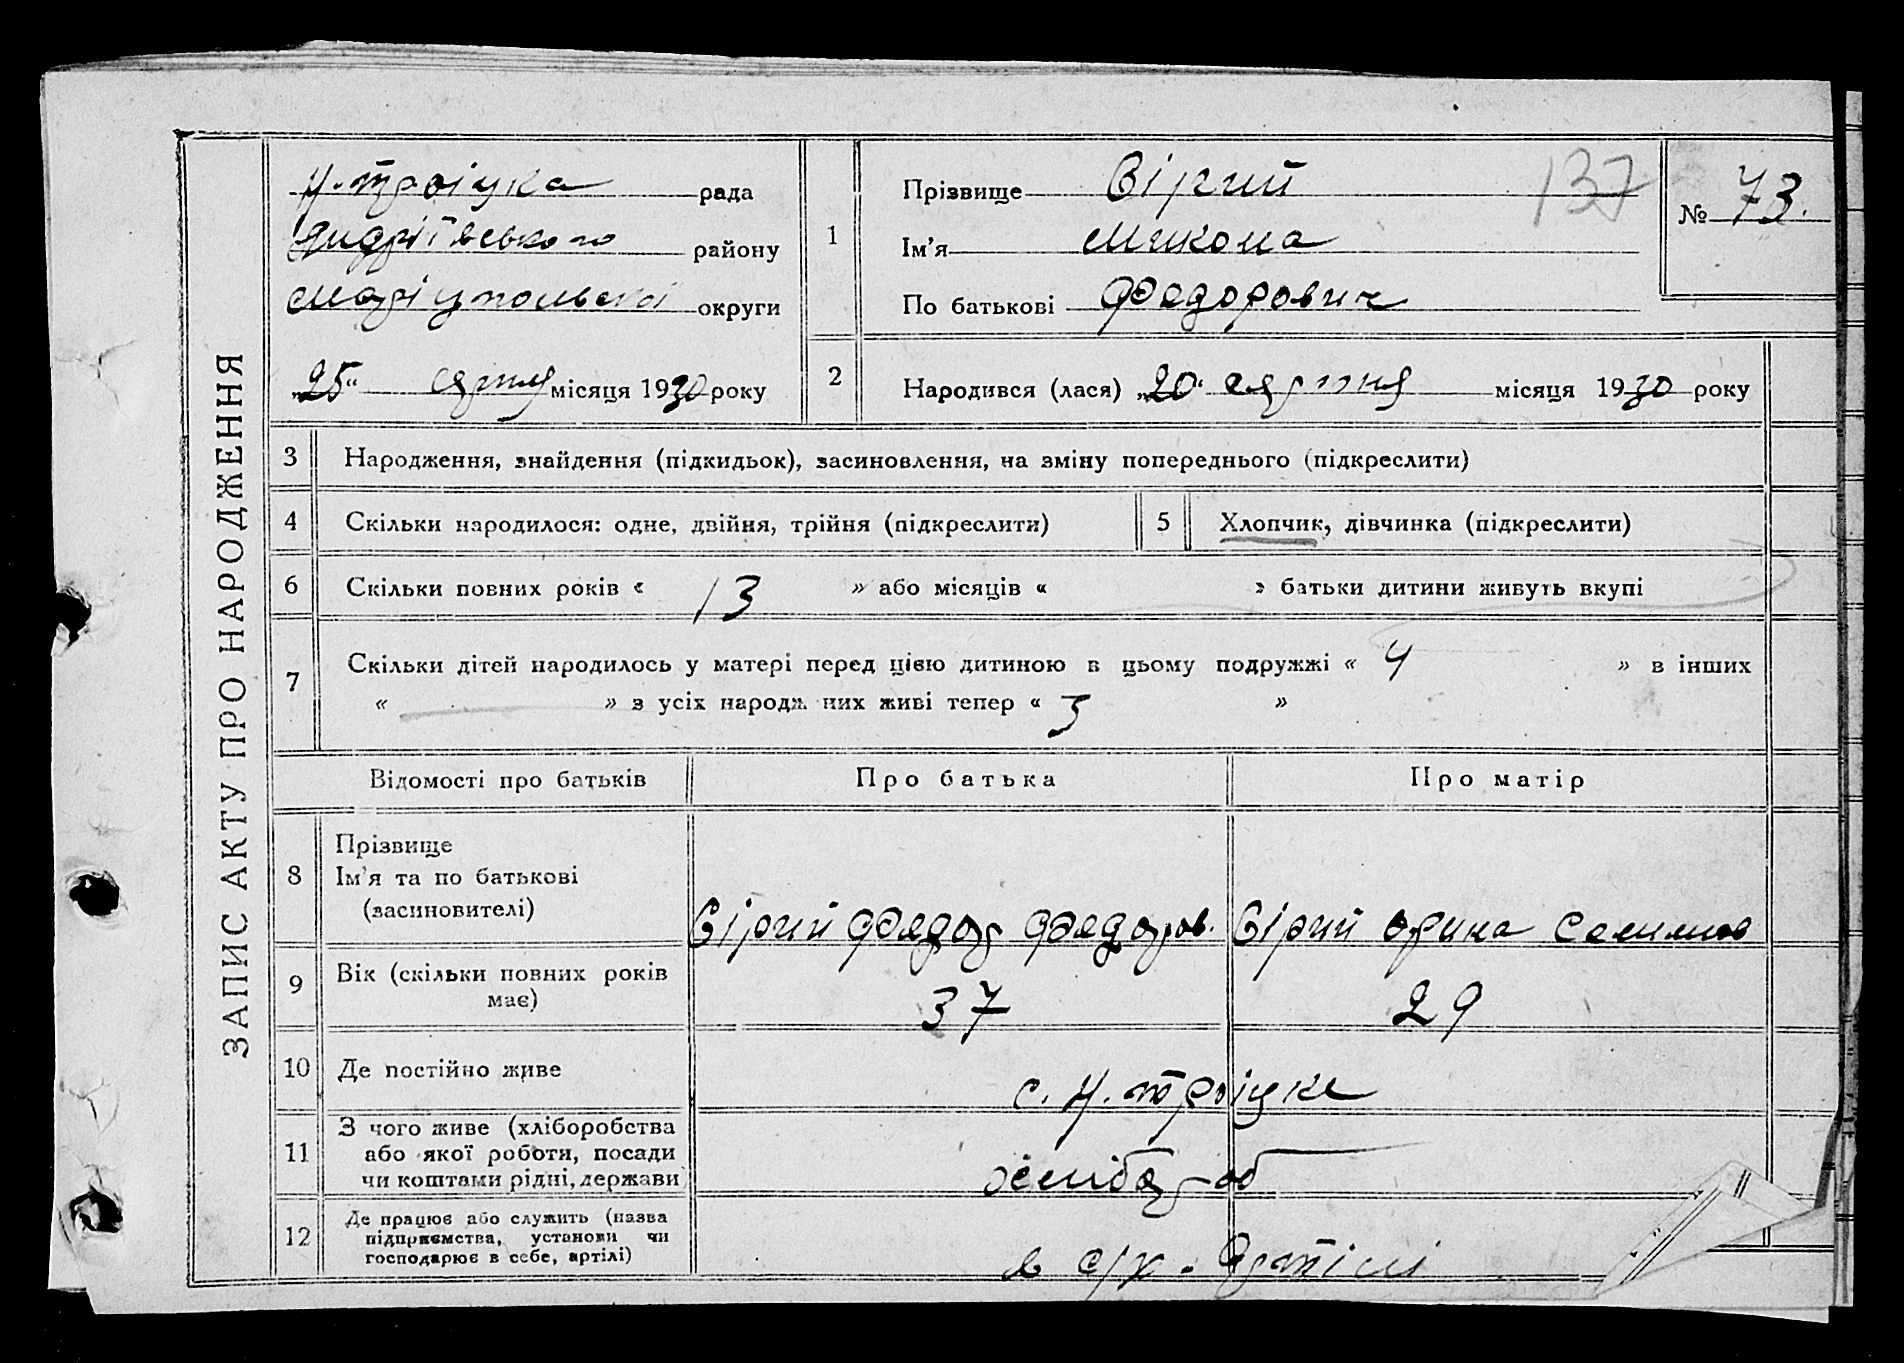 ЗАПИС АКТУ ПРО НАРОДЖЕННЯ
Н. Троіцка рада
Андріївського району
Маріупольскої округи
„25“ серпня місяця 1930 року
1
Прізвище Сірий
Ім’я Микола
По батькові Федорович
137
№ 73.
2
Народився (лася) „20“ серпня місяця 1930 року
3 Народження, знайдення (підкидьок), засиновлення, на зміну попереднього (підкреслити)
4 Скільки народилося: одне, двійня, трійня (підкреслити)
5 Хлопчик, дівчинка (підкреслити)
6 Скільки повних років « 13 » або місяців « » батьки дитини живуть вкупі
7 Скільки дітей народилось у матері перед цією дитиною в цьому подружжі « 4 » в інших
« » з усіх народж них живі тепер « 3 »
Відомості про батьків Про батька Про матір
8 Прізвище
Ім’я та по батькові
(засиновителі)
Сірий Федор Федоров. Сірий Орина Семенов
9 Вік (скільки повних років
має)
37 29
10 Де постійно живе
с. Н. Троіцке
11 З чого живе (хліборобства
або якої роботи, посади
чи коштами рідні, держави
хлібороб
12 Де працює або служить (назва
підприємства, установи чи
господарює в себе, артілі)
в с/х. Артілі